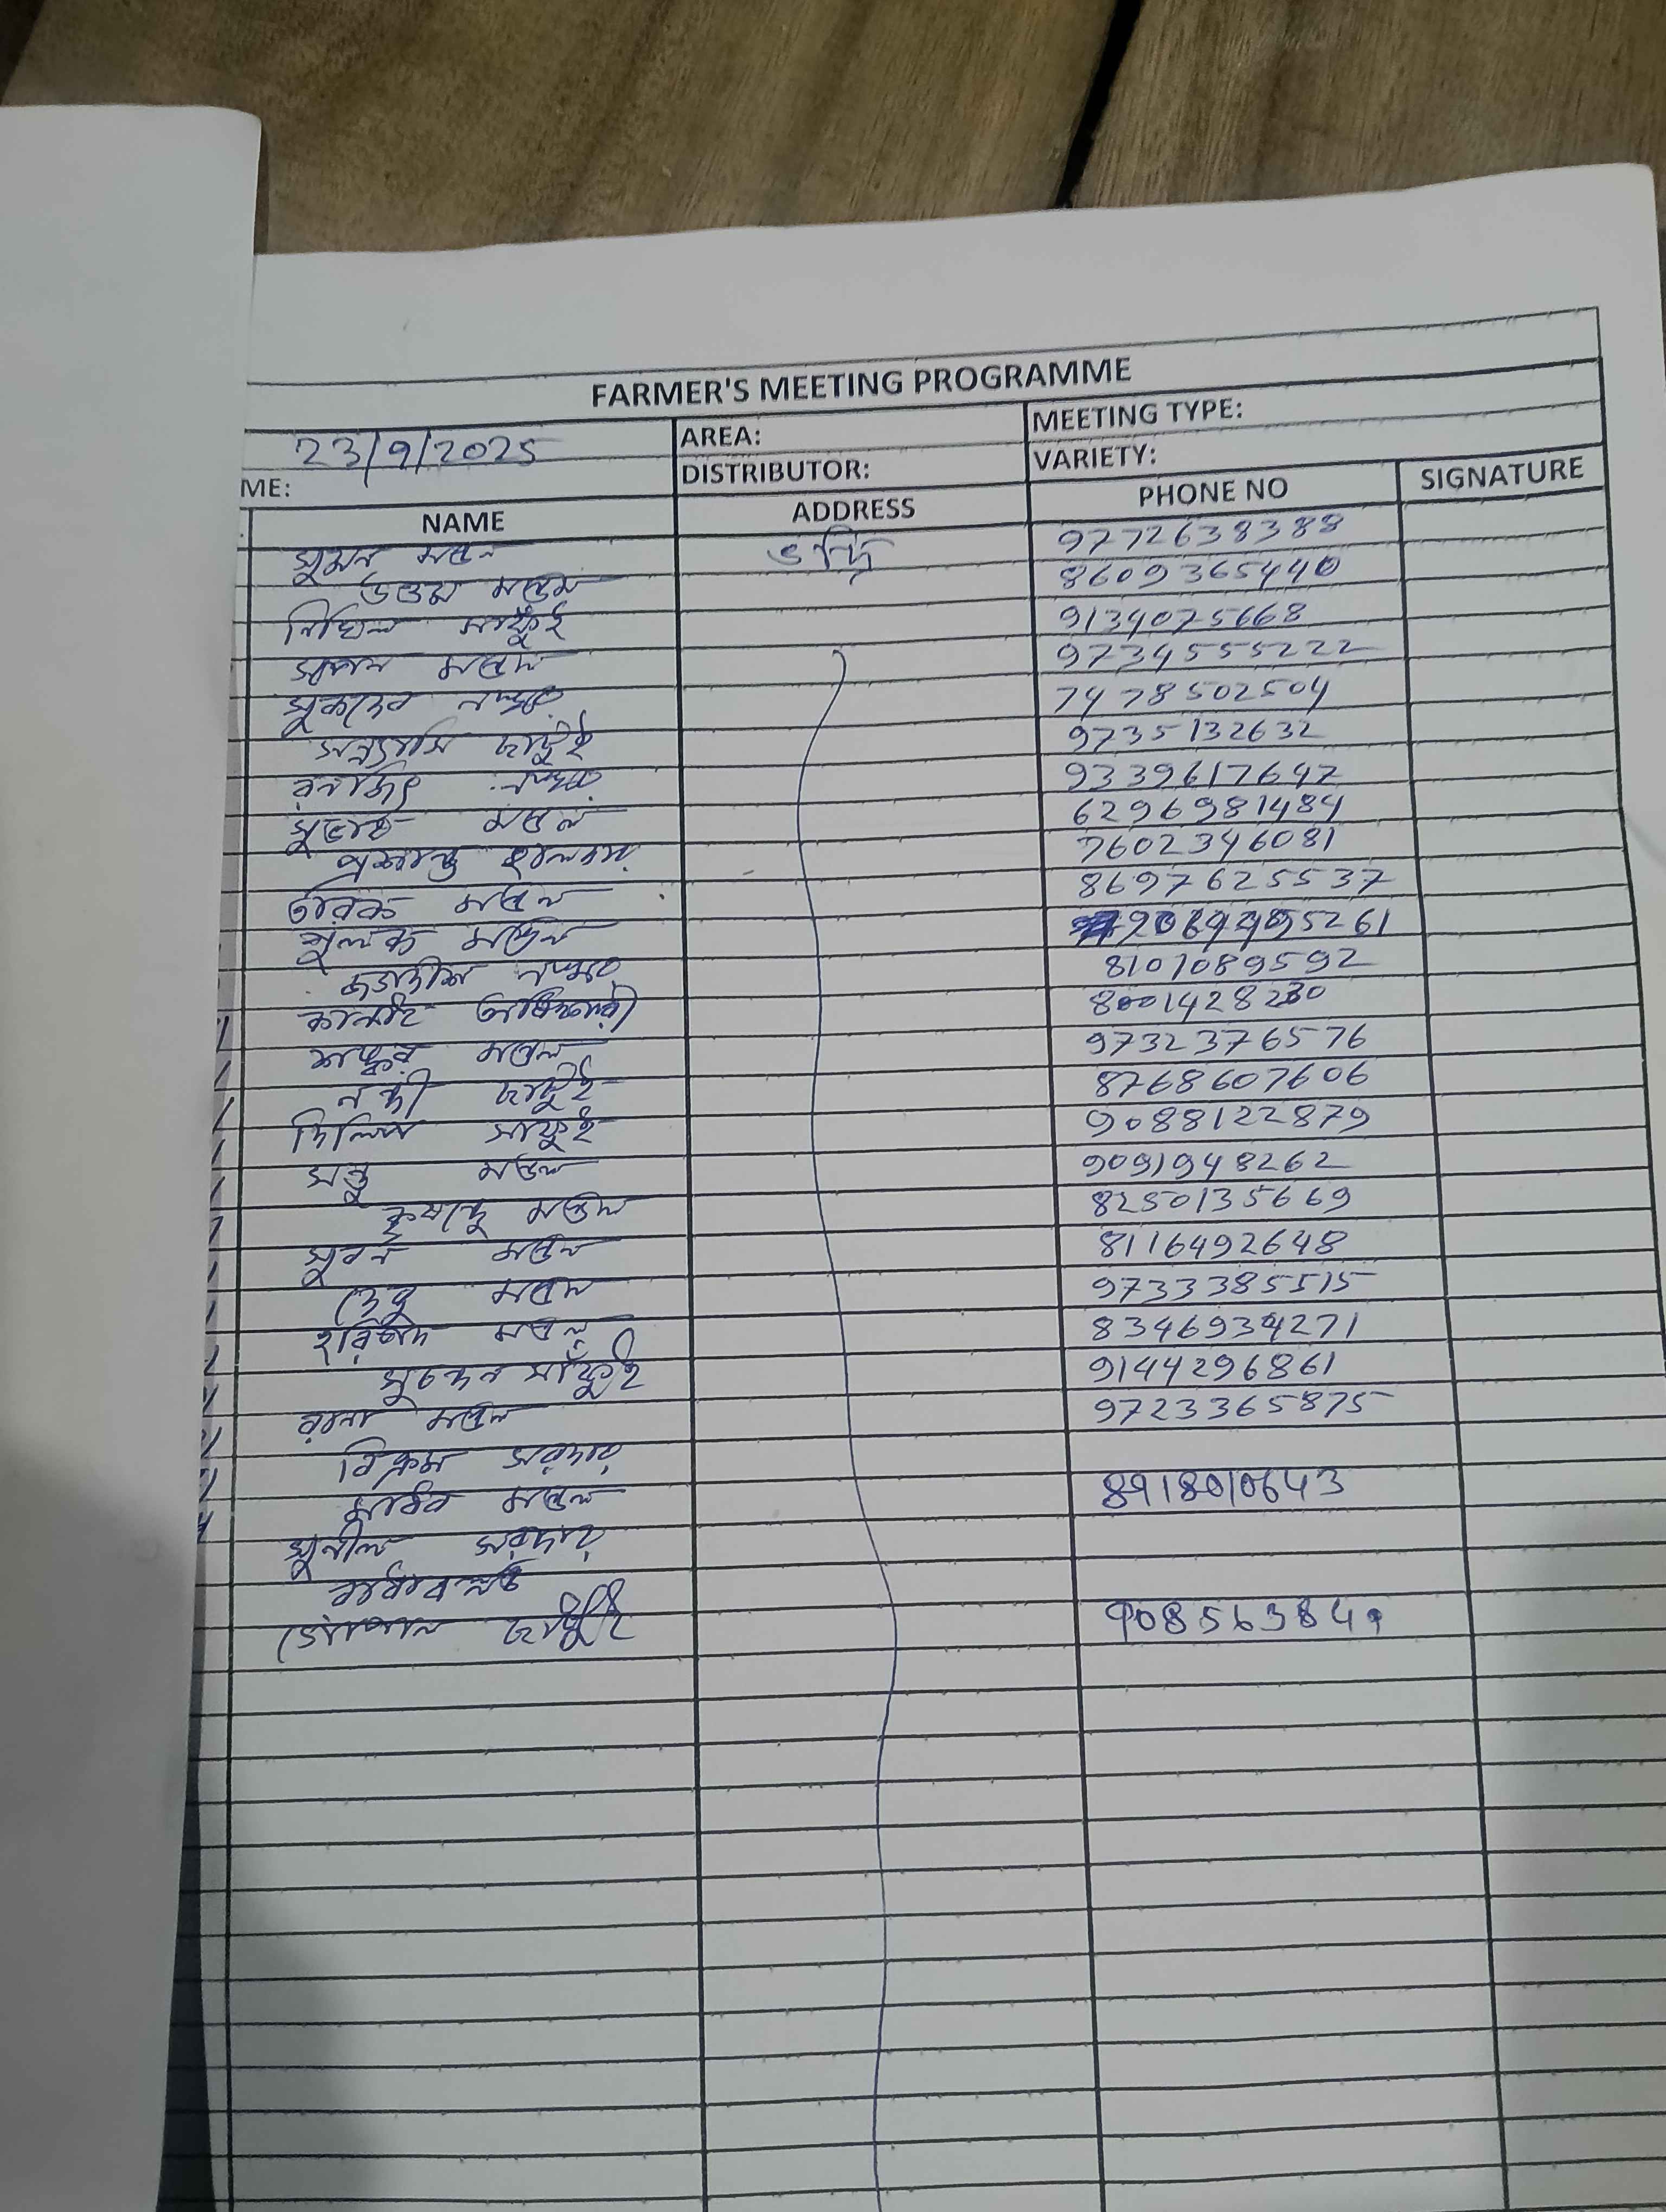 FARMER'S MEETING PROGRAMME
23/9/2025 AREA: MEETING TYPE:
ME: DISTRIBUTOR: VARIETY:
NAME ADDRESS PHONE NO SIGNATURE
সুমন মণ্ডল 9772638388
উত্তম মণ্ডল 8609365440
নিখিল সাফুঁই 9134075668
স্বপন মণ্ডল 9734555222
সুকদেব নস্কর 7478502504
সন্ন্যাসি জাটুই 9735132632
রনজিৎ নস্কর 9339617647
সুভাষ মণ্ডল 6296981484
প্রশান্ত হালদার 7602346081
তারক মণ্ডল 8697625537
পুলক মণ্ডল
জগদীশ নস্কর 8101089592
কানাই অধিকারী
শঙ্কর মণ্ডল 9732376576
নন্দী জাটুই 8768607606
দিলিপ সাফুঁই 9088122879
সন্তু মণ্ডল 9091948262
মণ্ডল 8250135669
সুবল মণ্ডল 8116492648
দেবু মণ্ডল 9733385515
হরিপদ মণ্ডল 8346934271
সাফুঁই 9144296861
রানা মণ্ডল 9723365875
বিক্রম সরদার
মাধব মণ্ডল 8918010643
সুনীল সরদার
গোপাল জাটুই